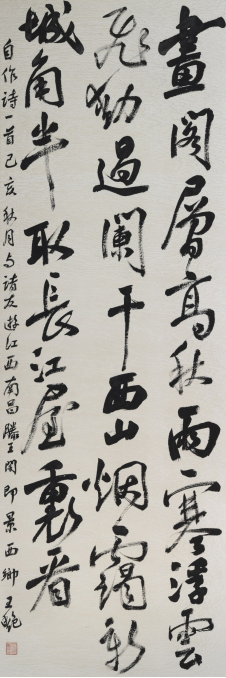 畫閣層高秋雨寒浮雲
飛動過闌干西山烟靄新
城角半取長江屋裏看
自作詩一首己亥秋月与諸友遊江西南昌滕王閣即景西鄉王